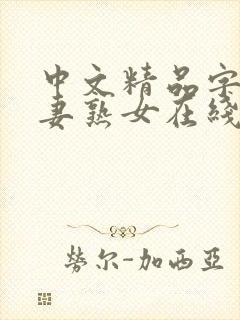 中文精品字
妻熟女在綫
勞尔-加西亞